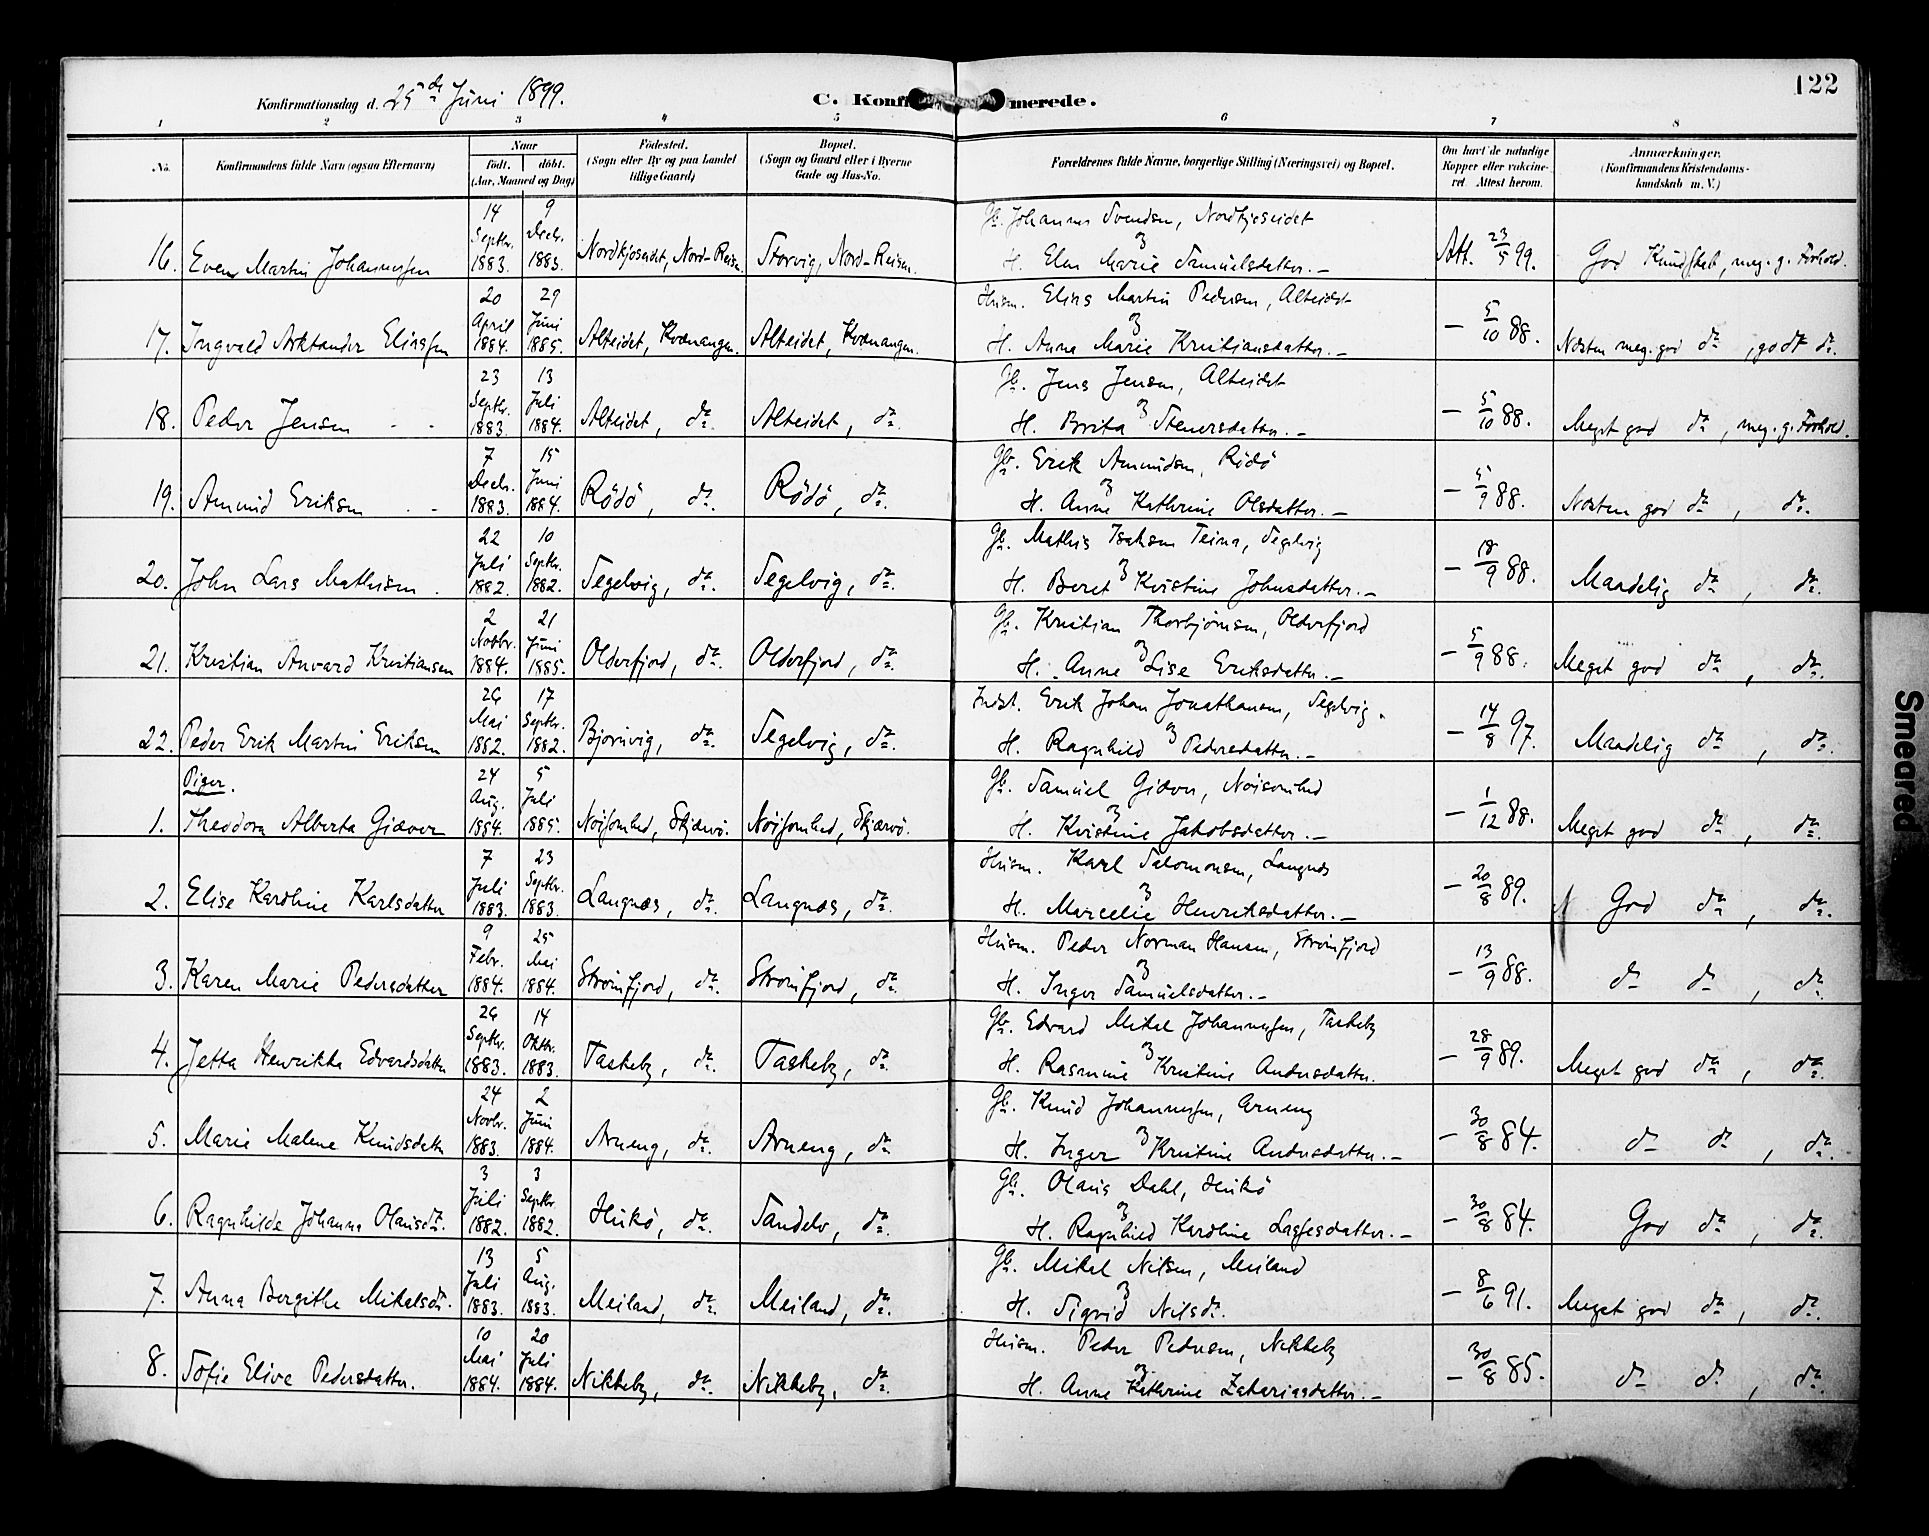 Konfirmationsdag d. 25de Juni 1899.
C. Konfi merede.
122
1 2 3 4 5 6 7 8
No. Konfirmandens fulde Navn (ogsaa Efternavn) Naar født. døbt. (Aar, Maaned og Dag) Fødested. (Sogn eller By og paa Landet tillige Gaard) Bopæl. (Sogn og Gaard eller i Byerne Gade og Hus-No. Forældrenes fulde Navne, borgerlige Stilling (Næringsvei) og Bopæl. Om havt de naturlige Kopper eller vakcineret. Attest herom. Anmærkninger. (Konfirmandens Kristendomskundskab m. V.)
14 9 Gb. Johannes Svendsen, Nordkjoseidet
Septbr. Decbr. &
16. Even Martin Johannessen 1883. 1883. Nordkjoseidet, Nord-Reisen. Storvig, Nord-Reisen. H. Elen Marie Samuelsdatter.- Att. 23/5 99. God Kundskab, meg. g. Forhold.
20 29 Husm. Elias Martin Pedersen, Alteidet
April Juni &
17. Ingvald Arktander Eliassen 1884. 1885. Alteidet, Kvænangen. Alteidet, Kvænangen. H. Anna Marie Kristiansdatter.- - 5/10 88. Næsten meg. god do, godt do.
23 13 Gb. Jens Jensen, Alteidet
Septbr. Juli &
18. Peder Jensen - - 1883. 1884. Alteidet, do. Alteidet, do. H. Brita Steuersdatter.- - 5/10 88. Meget god do, meg. g. Forhold.
7 15 Gb. Erik Amundsen, Rødø
Decbr. Juni &
19. Amund Eriksen . - 1883. 1884. Rødø, do. Rødø, do. H. Anne Kathrine Olsdatter.- - 5/9 88. Næsten god do, do.
22 10 Gb. Mathis Isaksen Teina, Segelvig
Juli Septbr. &
20. John Lars Mathisen. 1882. 1882. Segelvig, do. Segelvig, do. H. Beret Kristine Johnsdatter.- - 18/9 88. Maadelig do, do.
2 21 Gb. Kristian Thorbjørnsen, Olderfjord
Novbr. Juni &
21. Kristian Anvard Kristiansen 1884. 1885. Olderfjord, do. Olderfjord, do. H. Anne Lise Eriksdatter.- - 5/9 88. Meget god do, do.
26 17 Indst. Erik Johan Jonathansen, Segelvig.
Mai Septbr. &
22. Peder Erik Martin Eriksen 1882. 1882. Bjørnvig, do. Segelvig, do. H. Ragnhild Pedersdatter.- - 14/8 97. Maadelig do, do.
Piger. 24 5 Gb. Samuel Giæver, Nøisomhed
Aug. Juli &
1. Theodora Alberta Giæver 1884. 1885. Nøisomhed, Skjærvø. Nøisomhed, Skjærvø. H. Kristine Jakobsdatter.- - 1/12 88. Meget god do, do.
7 23 Husm. Karl Salomonsen, Langnæs
Juli Septbr. &
2. Elise Karoline Karlsdatter 1883. 1883. Langnæs, do. Langnæs, do. H. Marcelie Henriksdatter.- - 20/8 89. God do, do.
9 25 Husm. Peder Norman Hansen, Strømfjord
Febr. Mai &
3. Karen Marie Pedersdatter 1884. 1884. Strømfjord, do. Strømfjord, do. H. Inger Samuelsdatter.- - 13/9 88. do do, do.
26 14 Gb. Edvard Mikal Johannessen, Taskeby
Septbr. Oktbr. &
4. Jetta Henrikka Edvardsdatter 1883. 1883. Taskeby, do. Taskeby, do H. Rasmine Kristine Andersdatter. - 28/9 89. Meget god do, do.
24 2 Gb. Knud Johannessen, Arneng
Novbr. Juni &
5. Marie Malene Knudsdatter 1883. 1884. Arneng, do. Arneng, do H. Inger Kristine Andersdatter.- - 30/8 84. do do, do.
3 3 Gb. Olaus Dahl, Hukø
Juli Septbr. &
6. Ragnhilde Johanna Olausdr. 1882. 1882. Hukø, do. Sandelv, do. H. Ragnhild Karoline Lassesdatter.- - 30/8 84. God do, do.
13 5 Gb. Mikal Nilsen, Meiland
Juli Aug. &
7. Anna Bergithe Mikalsdr. 1883. 1883. Meiland, do. Meiland, do. H. Sigrid Nilsdr. - 8/6 91. Meget god do, do.
10 20 Husm. Peder Pedersen, Nikkeby
Mai Juli &
8. Sofie Elive Pedersdatter. 1884. 1884. Nikkeby, do. Nikkeby, do. H. Anne Kathrine Zakariasdatter.- - 30/8 85. do do, do.
Smeared